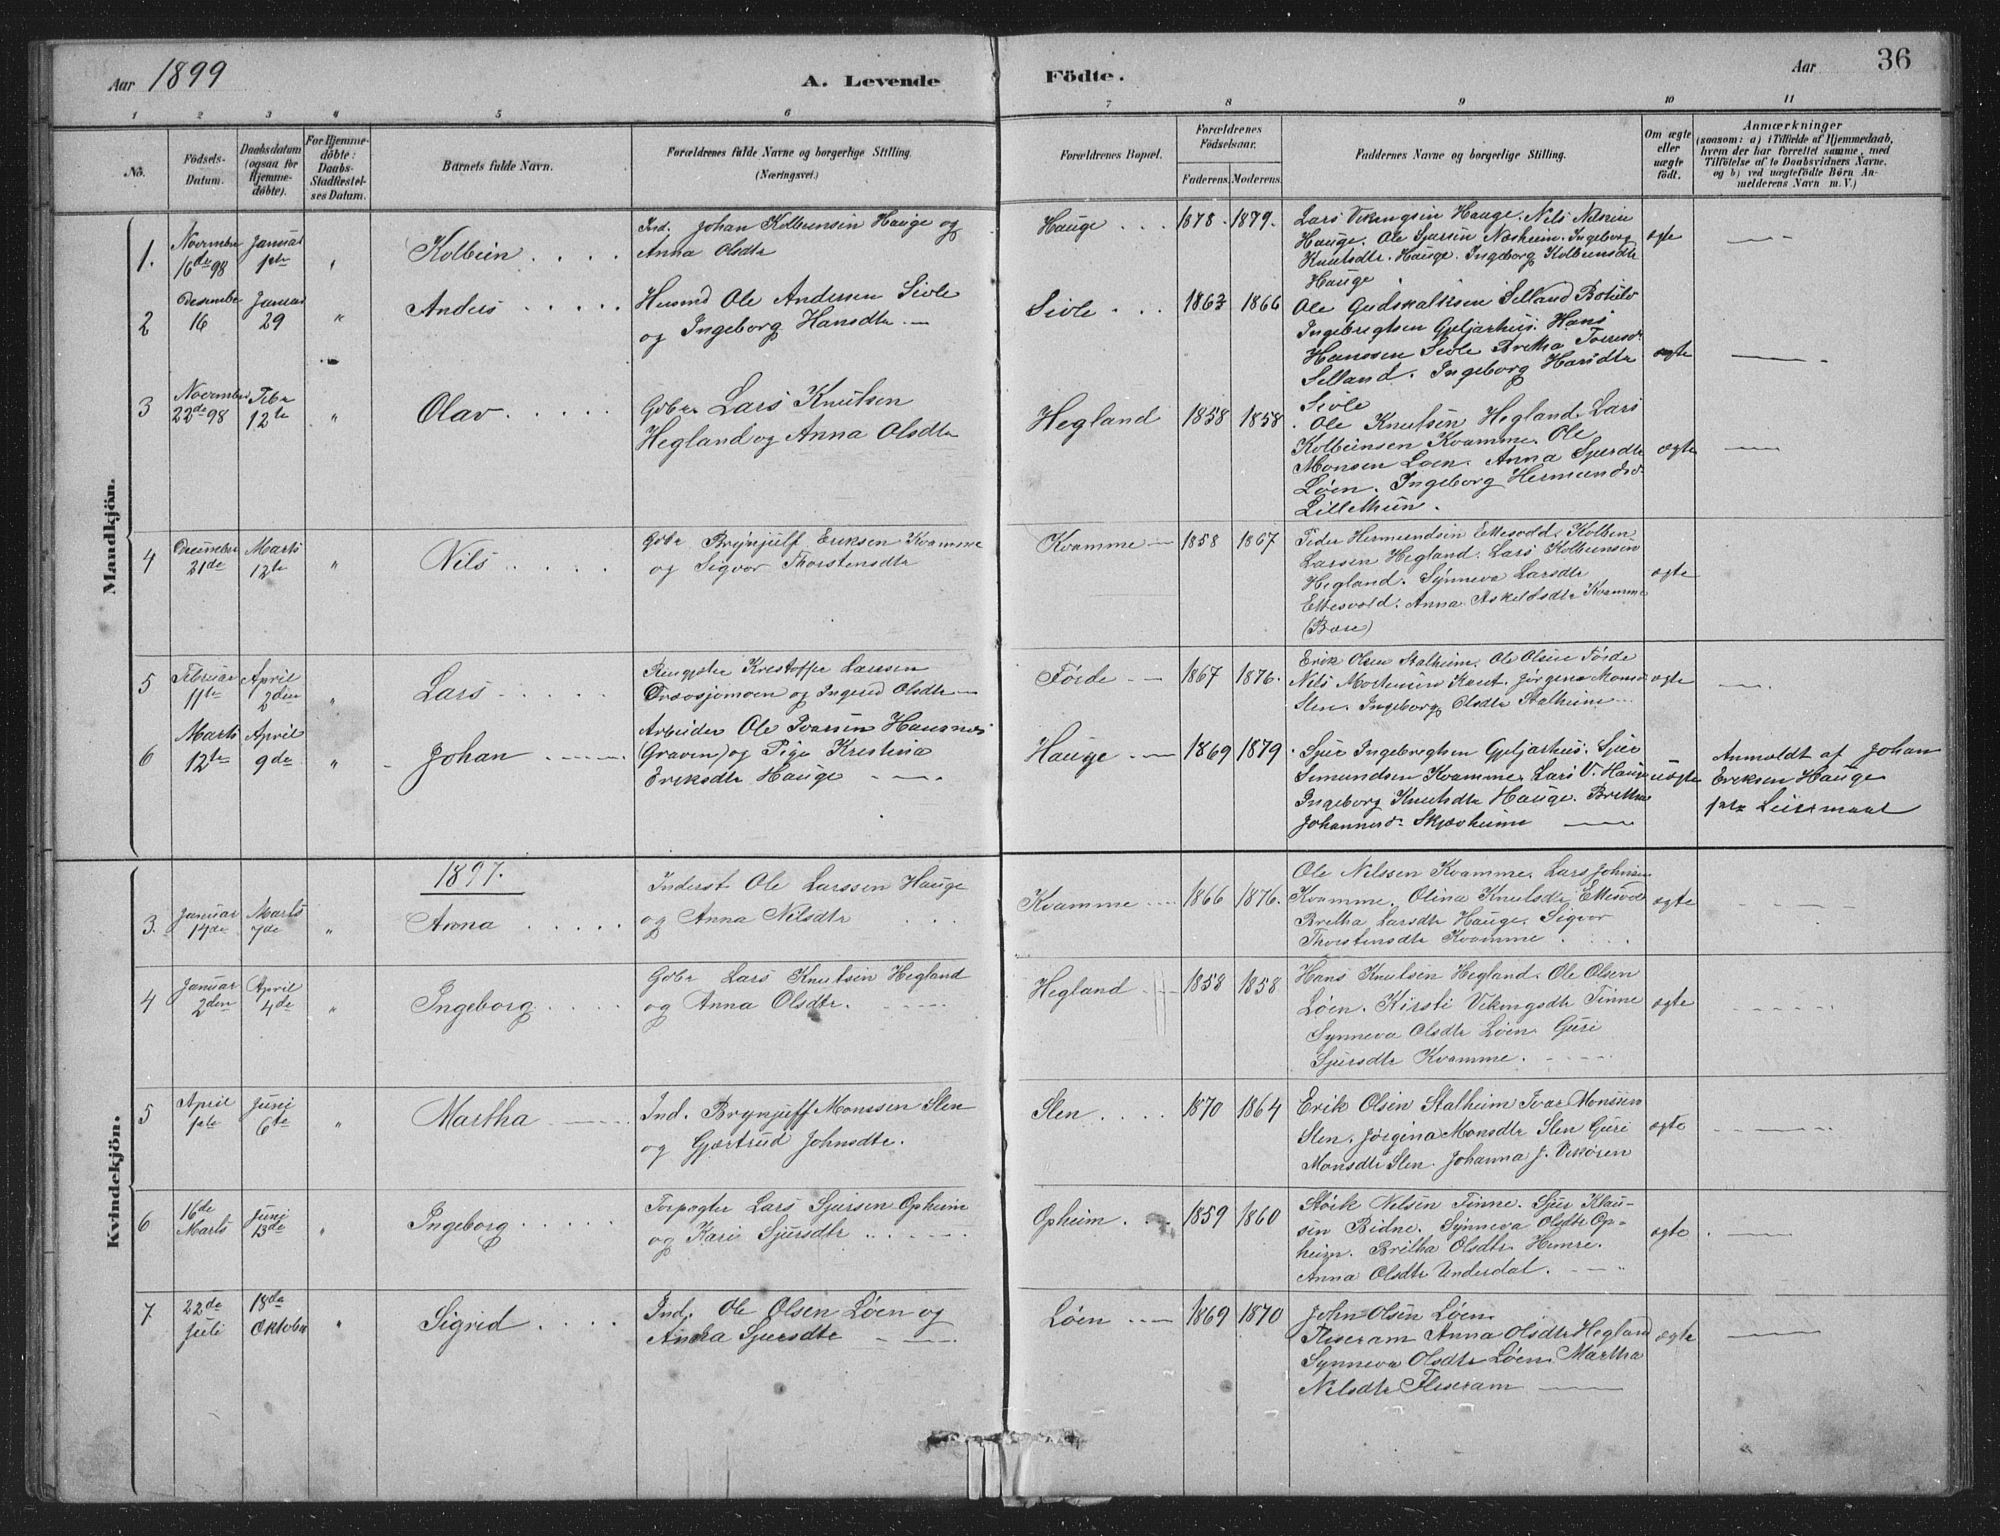 Aar 1899
A. Levende
Födte.
Aar
36
1 2 3 4 5 6 7 8 9 10 11
No.
Födsels-
Datum.
Daabsdatum
(ogsaa for
Hjemme-
döbte).
For Hjemme-
döbte:
Daabs-
Stadfæstel-
ses Datum.
Barnets fulde Navn.
Forældrenes fulde Navne og borgerlige Stilling.
(Næringsvei.)
Forældrenes Bopæl.
Forældrenes
Födselsaar.
Faderens. Moderens.
Faddernes Navne og borgerlige Stilling.
Om ægte
eller
uægte
födt.
Anmærkninger
(saasom: a) i Tilfælde af Hjemmedaab,
hvem der har forrettet samme, med
Tilföielse af to Daabsvidners Navne,
og b) ved uægtefödte Börn An-
melderens Navn m. V.)
Mandkjön.
1.
Novembr
16de 98
Januar
1ste
"
Kolbein
Ind. Johan Kolbeinsen Hauge og
Anna Olsdtr
Hauge
1878. 1879.
Lars Vikingsen Hauge. Nils Nilsen
Hauge. Ole Sjursen Næsheim. Ingeborg
Knutsdtr. Hauge. Ingeborg Kolbeinsdtr
Hauge
ægte
2
Desember
16
Januar
29
"
Anders
Husmd Ole Andersen Sivle
og Ingeborg Hansdtr
Sivle
1863 1866
Ole Gudskalksen Selland Botulv
Ingebrigtsen Gjeljarhus. Hans
Hanssen Sivle Bretha Torresd.
Selland. Ingeborg Hansdtr
Sivle
ægte
3
Novembr
22de 98
Febr
12te
"
Olav
Gbr. Lars Knutsen
Hegland og Anna Olsdtr
Hegland
1858 1858
Ole Knutsen Hegland. Lars
Kolbeinsen Kvamme. Ole
Monsen Løen. Anna Sjursdtr
Løen. Ingeborg Hermundsd.
Lillethun.
ægte
4
Desember
21de
Marts
12te
"
Nils
Gbr Brynjulf Eriksen Kvamme
og Sigvor Thorstensdtr
Kvamme
1858 1867
Peder Hermundsen Ettesvold. Kolben
Larsen Hegland. Lars Kolbeinsen
Hegland. Synneva Larsdtr
Ettesvold. Anna Askeldsdtr Kvamme
(Bære)
ægte
5
Februar
11te
April
2den
"
Lars
Krestoffer Larssen
og Ingerid Olsdtr
Førde
1867 1876.
Erik Olsen Stalheim. Ole Olsen Førde
Nils Mortensen. Jørgina Monsd
Slen. Ingeborg Olsdtr Stalheim
ægte
6
Marts
12te
April
9de
"
Johan
Arbeider Ole Ivarsen
(Graven) og Pige Kristina
Eriksdtr Hauge
Hauge
1869 1879
Sjur Ingebrigtsen Gjeljarhus. Sjur
Simundsen Kvamme. Lars V. Hauge
Ingeborg Knutsdtr Hauge. Bretha
Johannesd. Skjervheim
uægte
Anmeldt af Johan
Eriksen Hauge
Kvindekjön.
1897.
3.
Januar
14de
Marts
7de
"
Anna
Inderst Ole Larssen Hauge
og Anna Nilsdtr
Kvamme
1866 1876.
Ole Nilssen Kvamme. Lars Johnsen
Kvamme. Olina Knutsdtr Ettesvold
Bretha Larsdtr Hauge. Sigvor
Thorstensdtr Kvamme
ægte
4
Januar
2den
April
4de
"
Ingeborg
Gbr Lars Knutsen Hegland
og Anna Olsdtr.
Hegland
1858 1858
Hans Knutsen Hegland. Ole Olsen
Løen. Kirsti Vikingsdtr Tinne
Synneva Olsdtr Løen. Guri
Sjursdtr Kvamme.
ægte
5
April
1ste
Juni
6te
"
Martha
Ind. Brynjulf Monssen Slen
og Gjertrud Johnsdtr.
Slen
1870 1864
Erik Olsen Stalheim Ivar Monssen
Slen. Jørgina Monsdtr Slen Guri
Monsdtr Slen. Johanna J. Vikøren
ægte
6
16de
Marts
Juni
13de
"
Ingeborg
Lars Sjursen Opheim
og Kari Sjursdtr
Opheim
1859 1860
Størk Nilsen Tinne. Sjur Klau-
sen Bidne. Synneva Olsdtr Op-
heim. Britha Olsdtr. Himre.
Anna Olsdtr Underdal.
ægte.
7.
22de
Juli
18de
Oktober
"
Sigrid
Ind. Ole Olsen Løen og
Anna Sjursdtr
Løen
1869 1870
John Olsen Løen.
Fliseram Anna Olsdtr Hegland
Synneva Olsdtr Løen. Martha
Nilsdtr Fliseram
ægte